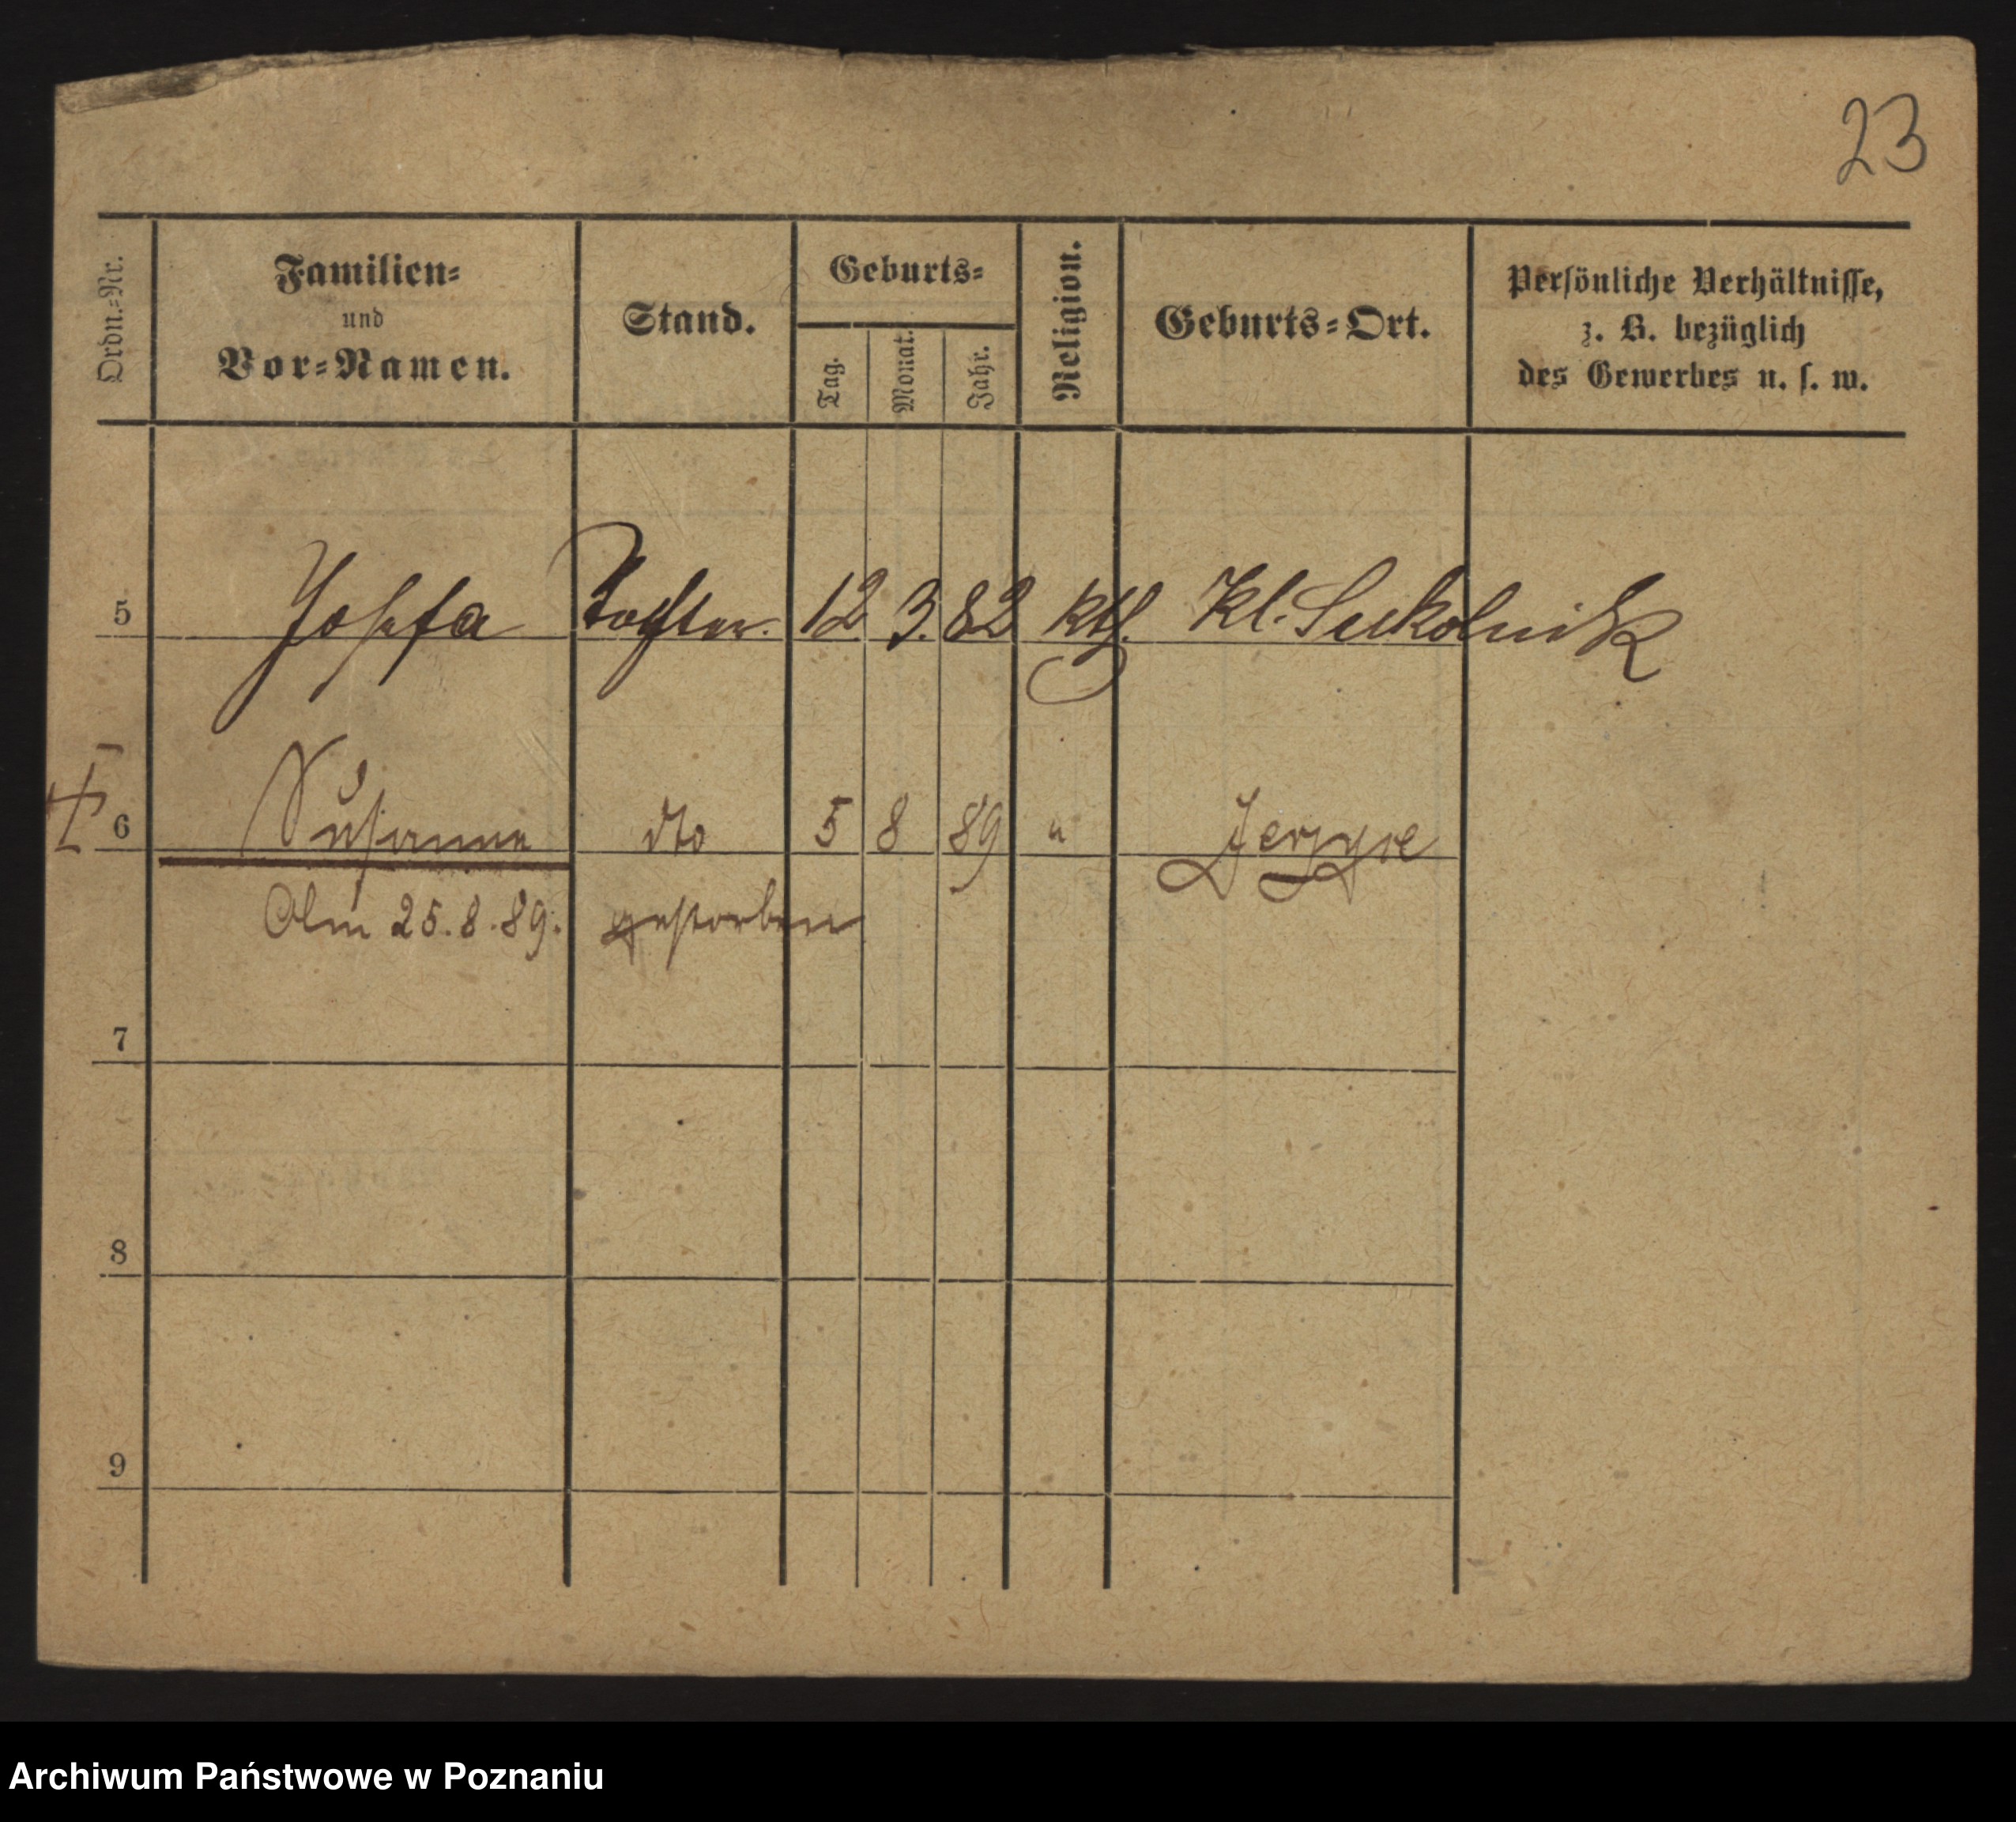 23
Ordn.=Nr.
Familien=
und
Vor=Namen.
Stand.
Geburts=
Tag.
Monat.
Jahr.
Religion.
Geburts=Ort.
Persönliche Verhältnisse,
z. B. bezüglich
des Gewerbes u. s. w.
5 Josefa Tochter. 12 3. 82 kth. Kl. Sukolnik
6 Susanna dto 5 8 89 " Jerzyce
Am 25.8.89. gestorben
7
8
9
Archiwum Państwowe w Poznaniu